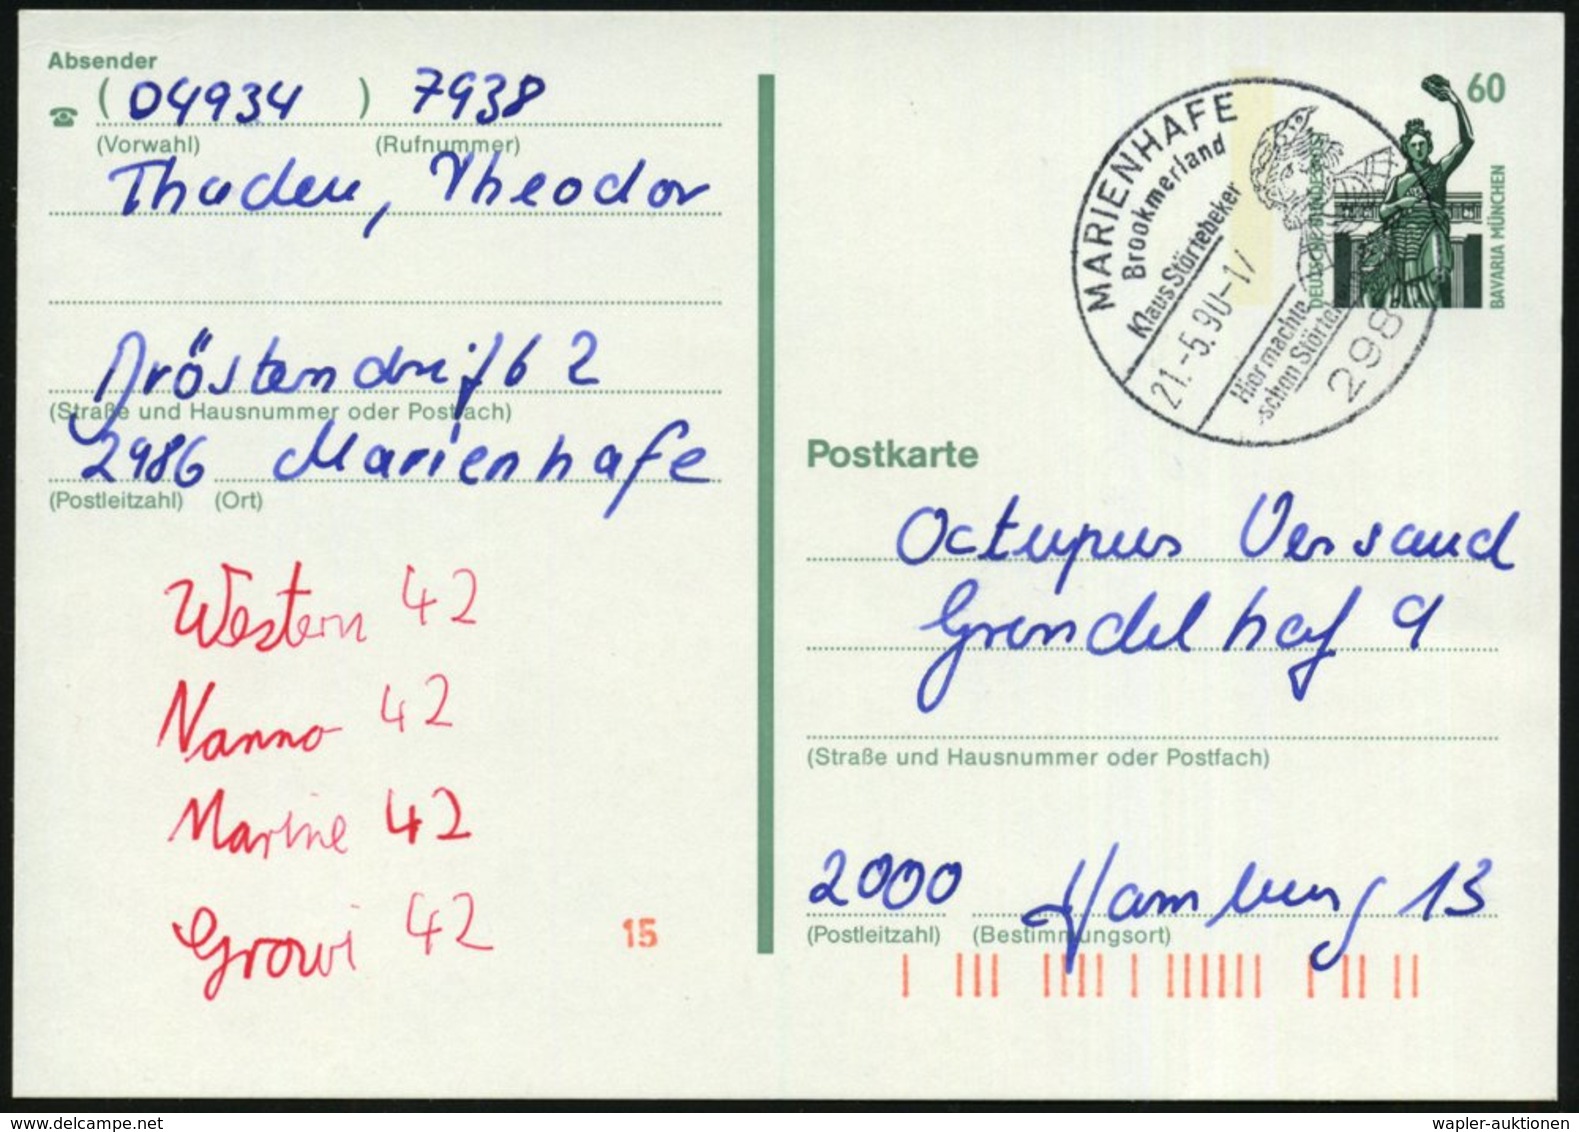 Absender
(04934) 7938
(Vorwahl) (Rufnummer)
Thaden, Theodor
Dröstendreift 2
(Straße und Hausnummer oder Postfach)
2986 Marienhafe
(Postleitzahl) (Ort)
Western 42
Nanno 42
Marine 42
Growi 42
15
60
DEUTSCHE BUNDESPOST
BAVARIA MÜNCHEN
MARIENHAFE
Brookmerland
Klaus Störtebeker
21.-5.90-17
Hier machte
schon Störte
298
Postkarte
Octupus Versand
Grindelhof 9
(Straße und Hausnummer oder Postfach)
2000 Hamburg 13
(Postleitzahl) (Bestimmungsort)
wapler-auktionen